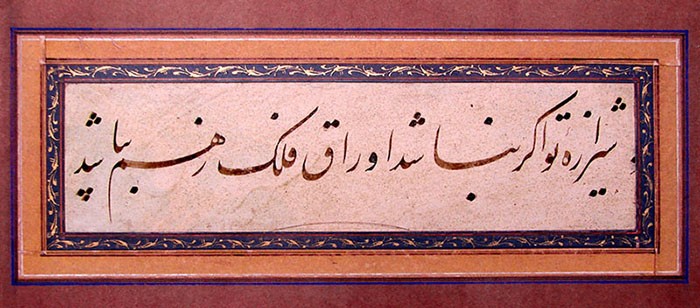 شیرازهٔ تو اگر نباشد اوراق فلک ز هم بپاشد